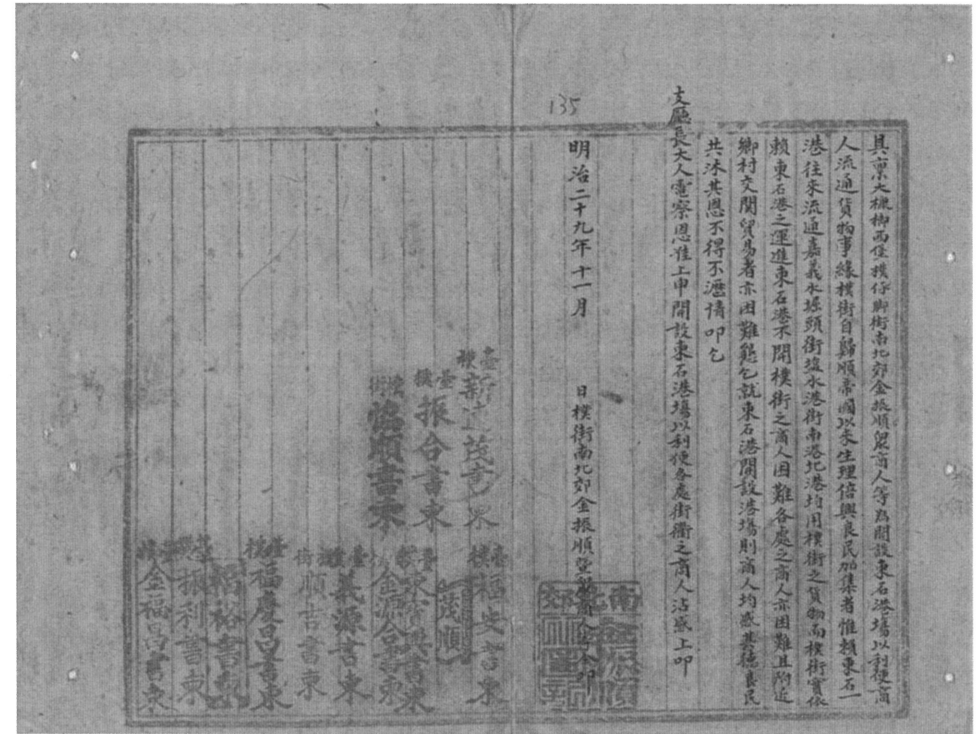 135
具稟大槺榔西堡樸仔脚街南北郊金振順曁商人等為開設東石港場以利便商
人流通貨物事緣樸街自歸順帝國以來生理倍興良民加集者惟賴東石一
港往來流通嘉義水堀頭街塩水港街南港北港均用樸街之貨物而樸街實依
賴東石港之運進東石港不開樸街之商人困難各處之商人亦困難且附近
鄉村交関貿易者亦困難懇乞就東石港開設港場則商人均感其德良民
共沐其恩不得不瀝情叩乞
支廳長大人電察恩准上申開設東石港場以利便各處街衢之商人沾感上叩
明治二十九年十一月 日樸街南北郊金振順曁
南北郊金振順
振合書柬
協順書柬
茂順
義源書柬
順吉書柬
福慶昌書柬
裕書柬
振利書柬
金福昌書柬